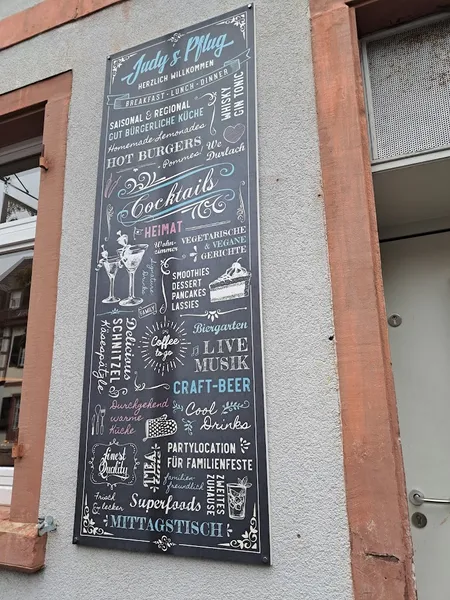 Judy's Pflug
HERZLICH WILLKOMMEN
BREAKFAST · LUNCH · DINNER
SAISONAL & REGIONAL
GUT BÜRGERLICHE KÜCHE
Homemade Lemonades
HOT BURGERS
Pommes
WHISKY
GIN TONIC
We
Durlach
Cocktails
HEIMAT
Wohn-
zimmer
VEGETARISCHE
& VEGANE
GERICHTE
signature
Drinks
SMOOTHIES
DESSERT
PANCAKES
LASSIES
FAMILY
Biergarten
Delicious
SCHNITZEL
Käsespätzle
Coffee
to go
LIVE
MUSIK
CRAFT-BEER
Durchgehend
warme
Küche
Cool
Drinks
finest
Quality
TEA
TIME
PARTYLOCATION
FÜR FAMILIENFESTE
familien-
freundlich
ZWEITES
ZUHAUSE
Frisch
& lecker
Superfoods
MITTAGSTISCH